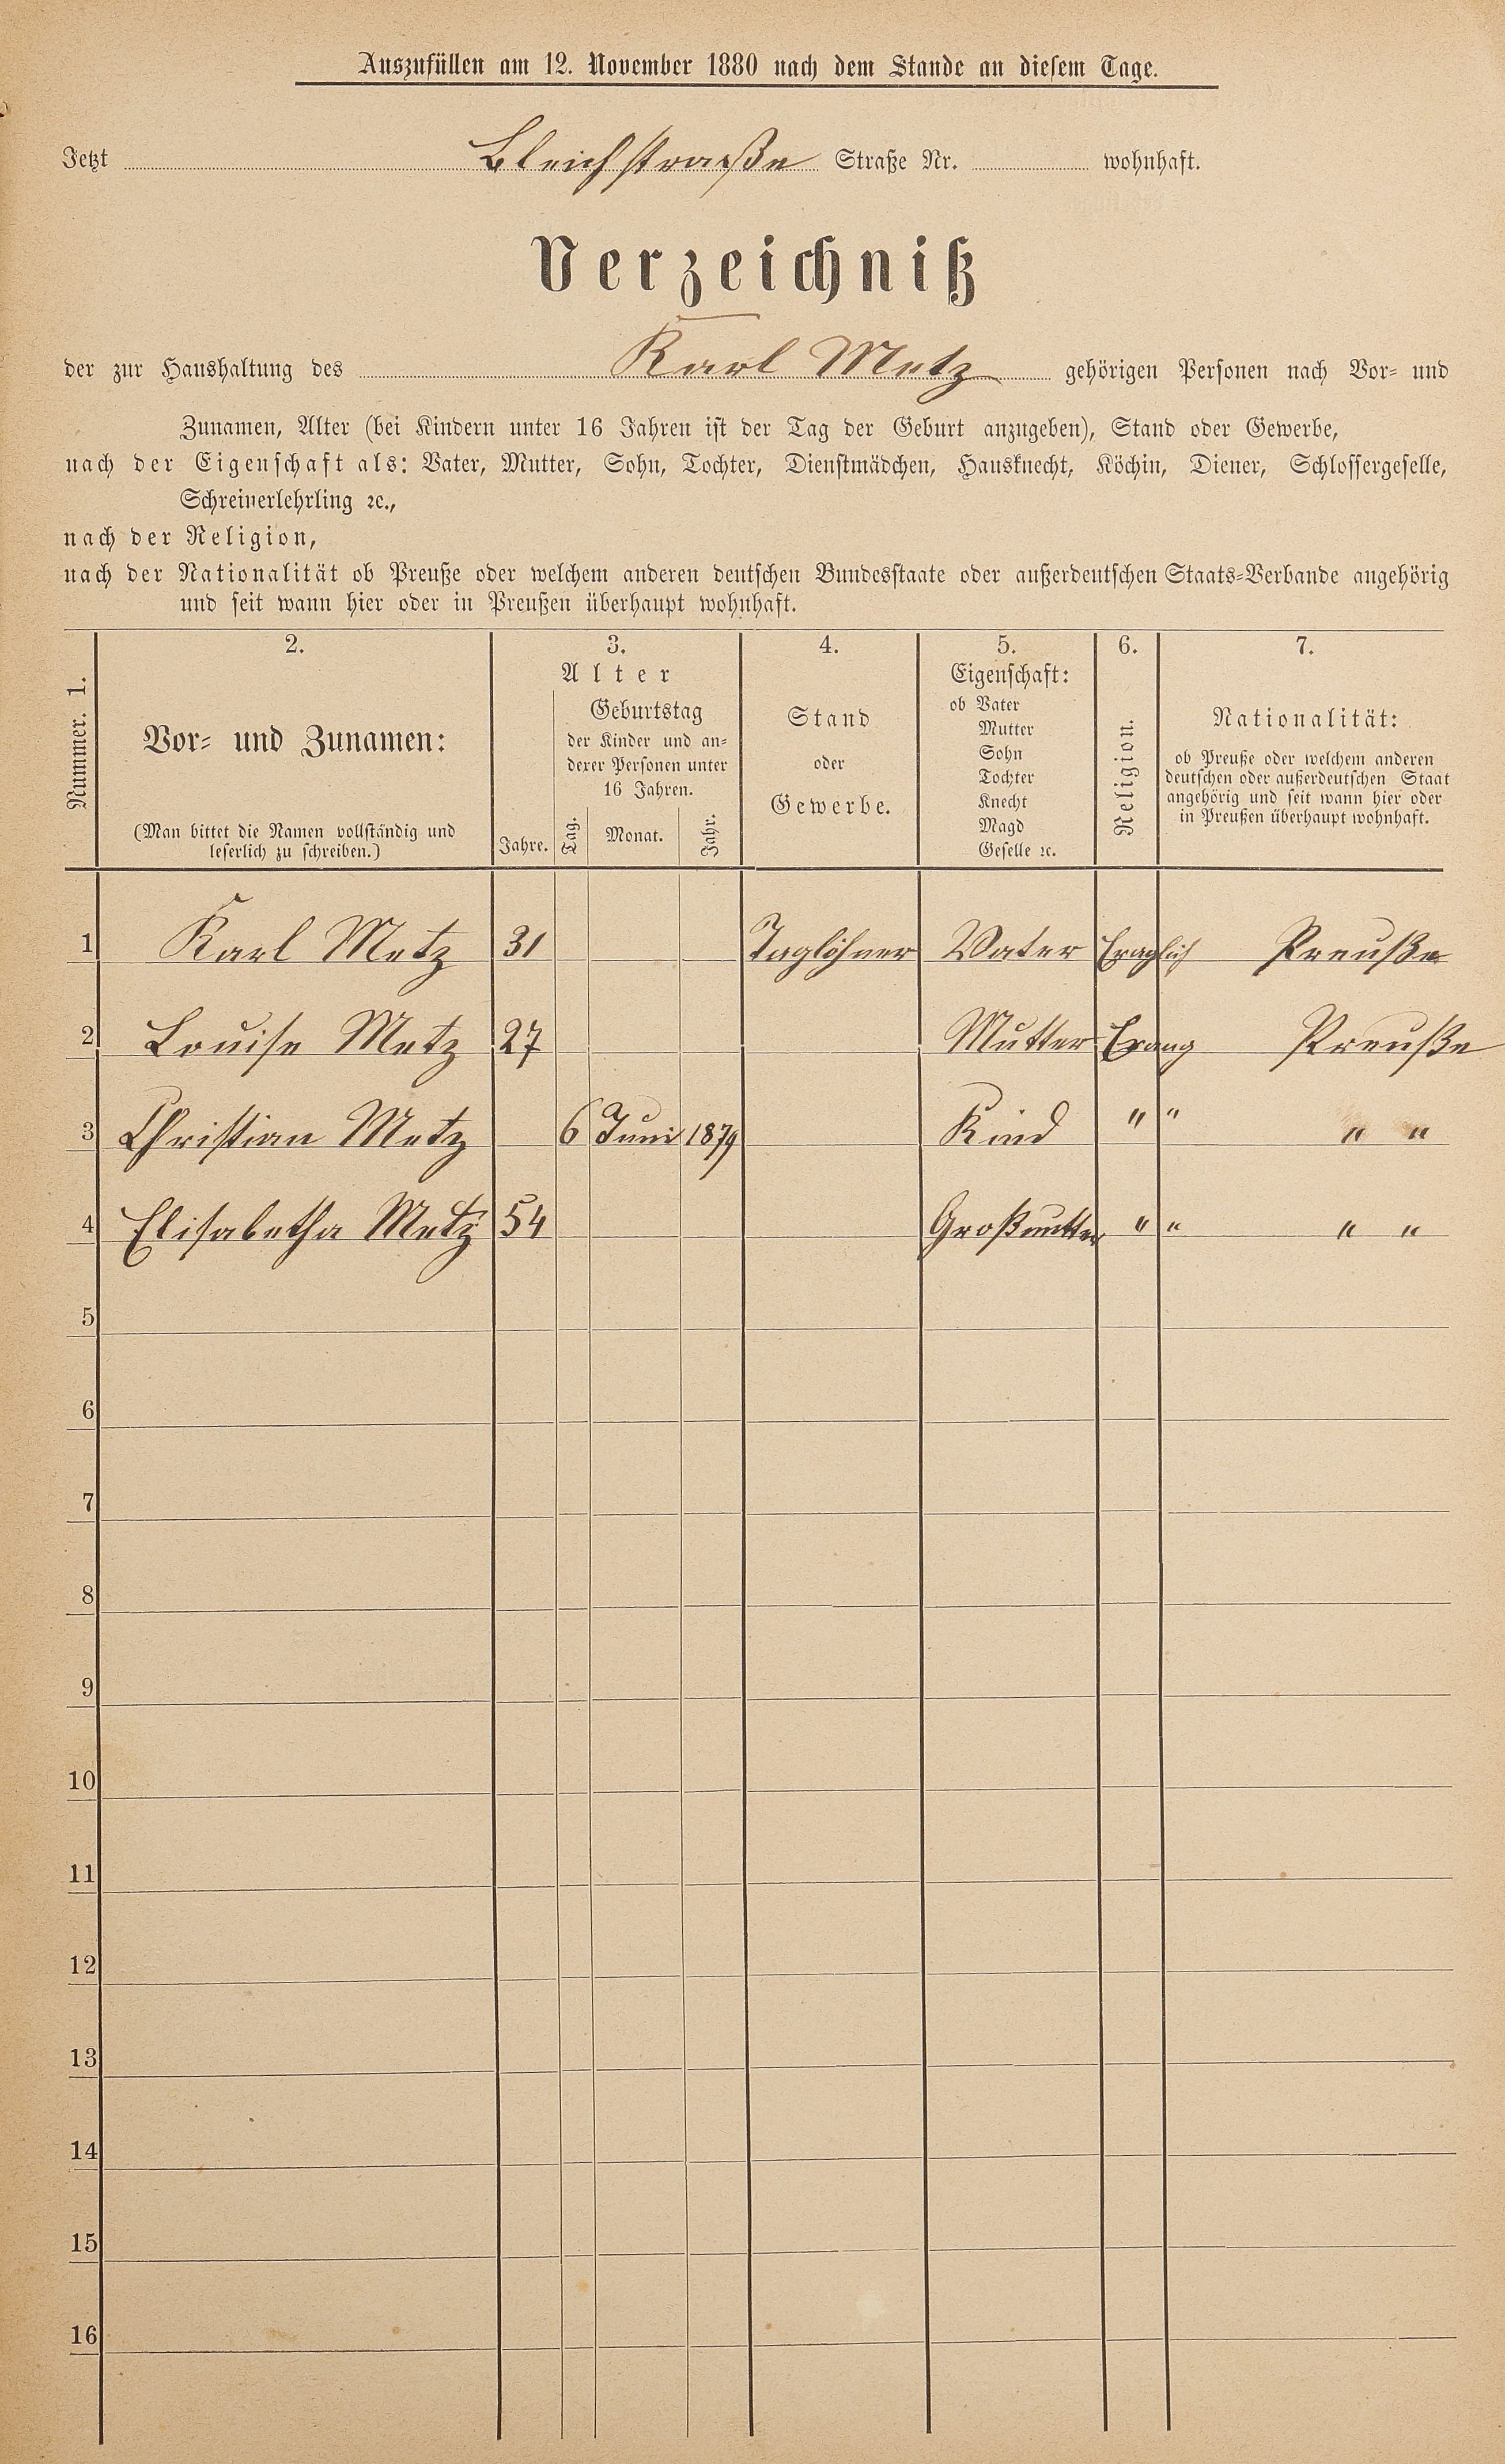 Auszufüllen am 12. November 1880 nach dem Stande an diesem Tage.
Jetzt Bleichstraße Straße Nr. wohnhaft.
Verzeichniß
der zur Haushaltung des Karl Metz gehörigen Personen nach Vor- und
Zunamen, Alter (bei Kindern unter 16 Jahren ist der Tag der Geburt anzugeben), Stand oder Gewerbe,
nach der Eigenschaft als: Vater, Mutter, Sohn, Tochter, Dienstmädchen, Hausknecht, Köchin, Diener, Schlossergeselle,
Schreinerlehrling ꝛc.,
nach der Religion,
nach der Nationalität ob Preuße oder welchem anderen deutschen Bundesstaate oder außerdeutschen Staats-Verbande angehörig
und seit wann hier oder in Preußen überhaupt wohnhaft.
Nummer. 1.
2.
Vor- und Zunamen:
(Man bittet die Namen vollständig und
leserlich zu schreiben.)
3.
Alter
Geburtstag
der Kinder und an-
derer Personen unter
16 Jahren.
Jahre. Tag. Monat. Jahr.
4.
Stand
oder
Gewerbe.
5.
Eigenschaft:
ob Vater
Mutter
Sohn
Tochter
Knecht
Magd
Geselle ꝛc.
6.
Religion.
7.
Nationalität:
ob Preuße oder welchem anderen
deutschen oder außerdeutschen Staat
angehörig und seit wann hier oder
in Preußen überhaupt wohnhaft.
1 Karl Metz 31 Taglöhner Vater Preuße
2 Louise Metz 27 Mutter Evang Preuße
3 Christian Metz 6 Juni 1879 Kind " " " "
4 Elisabetha Metz 54 Großmutter " " " "
5
6
7
8
9
10
11
12
13
14
15
16